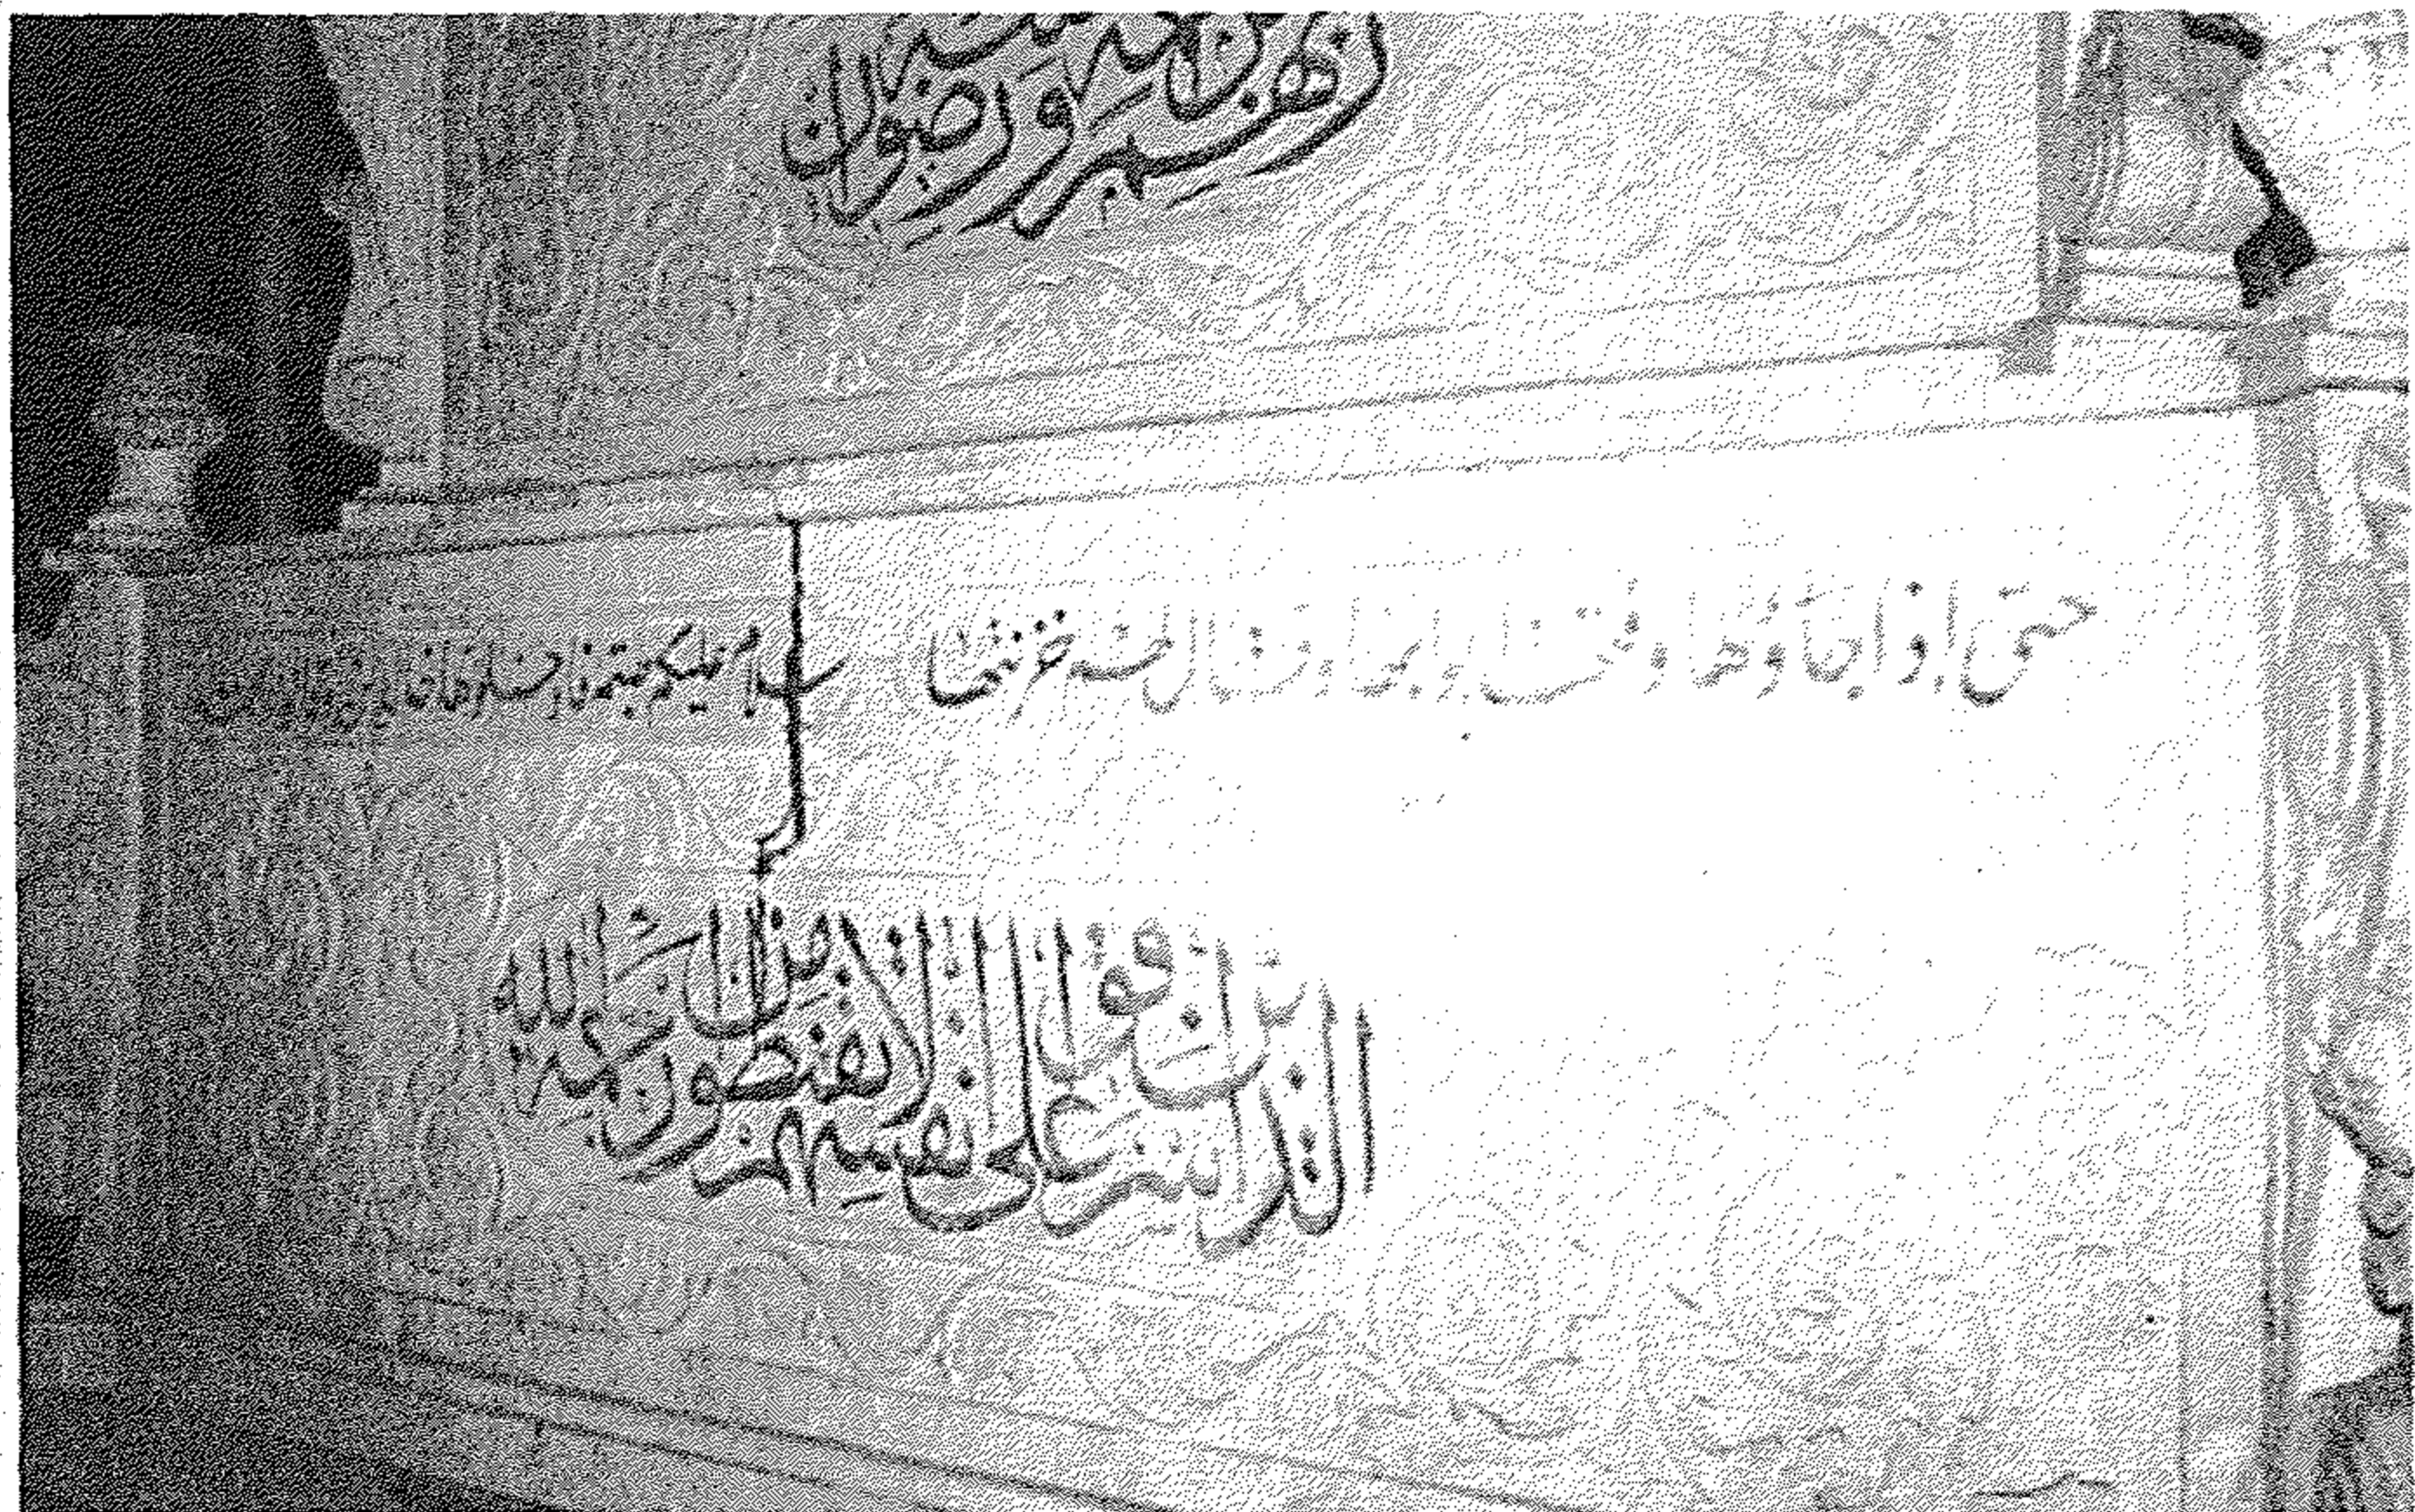 ربهم برحمة منه ورضوان
حتى إذا جاؤها وفتحت ابوابها وقال لهم خزنتها سلام عليكم طبتم فادخلوها خالدين
الذين اسرفوا على انفسهم لا تقنطوا من رحمة الله